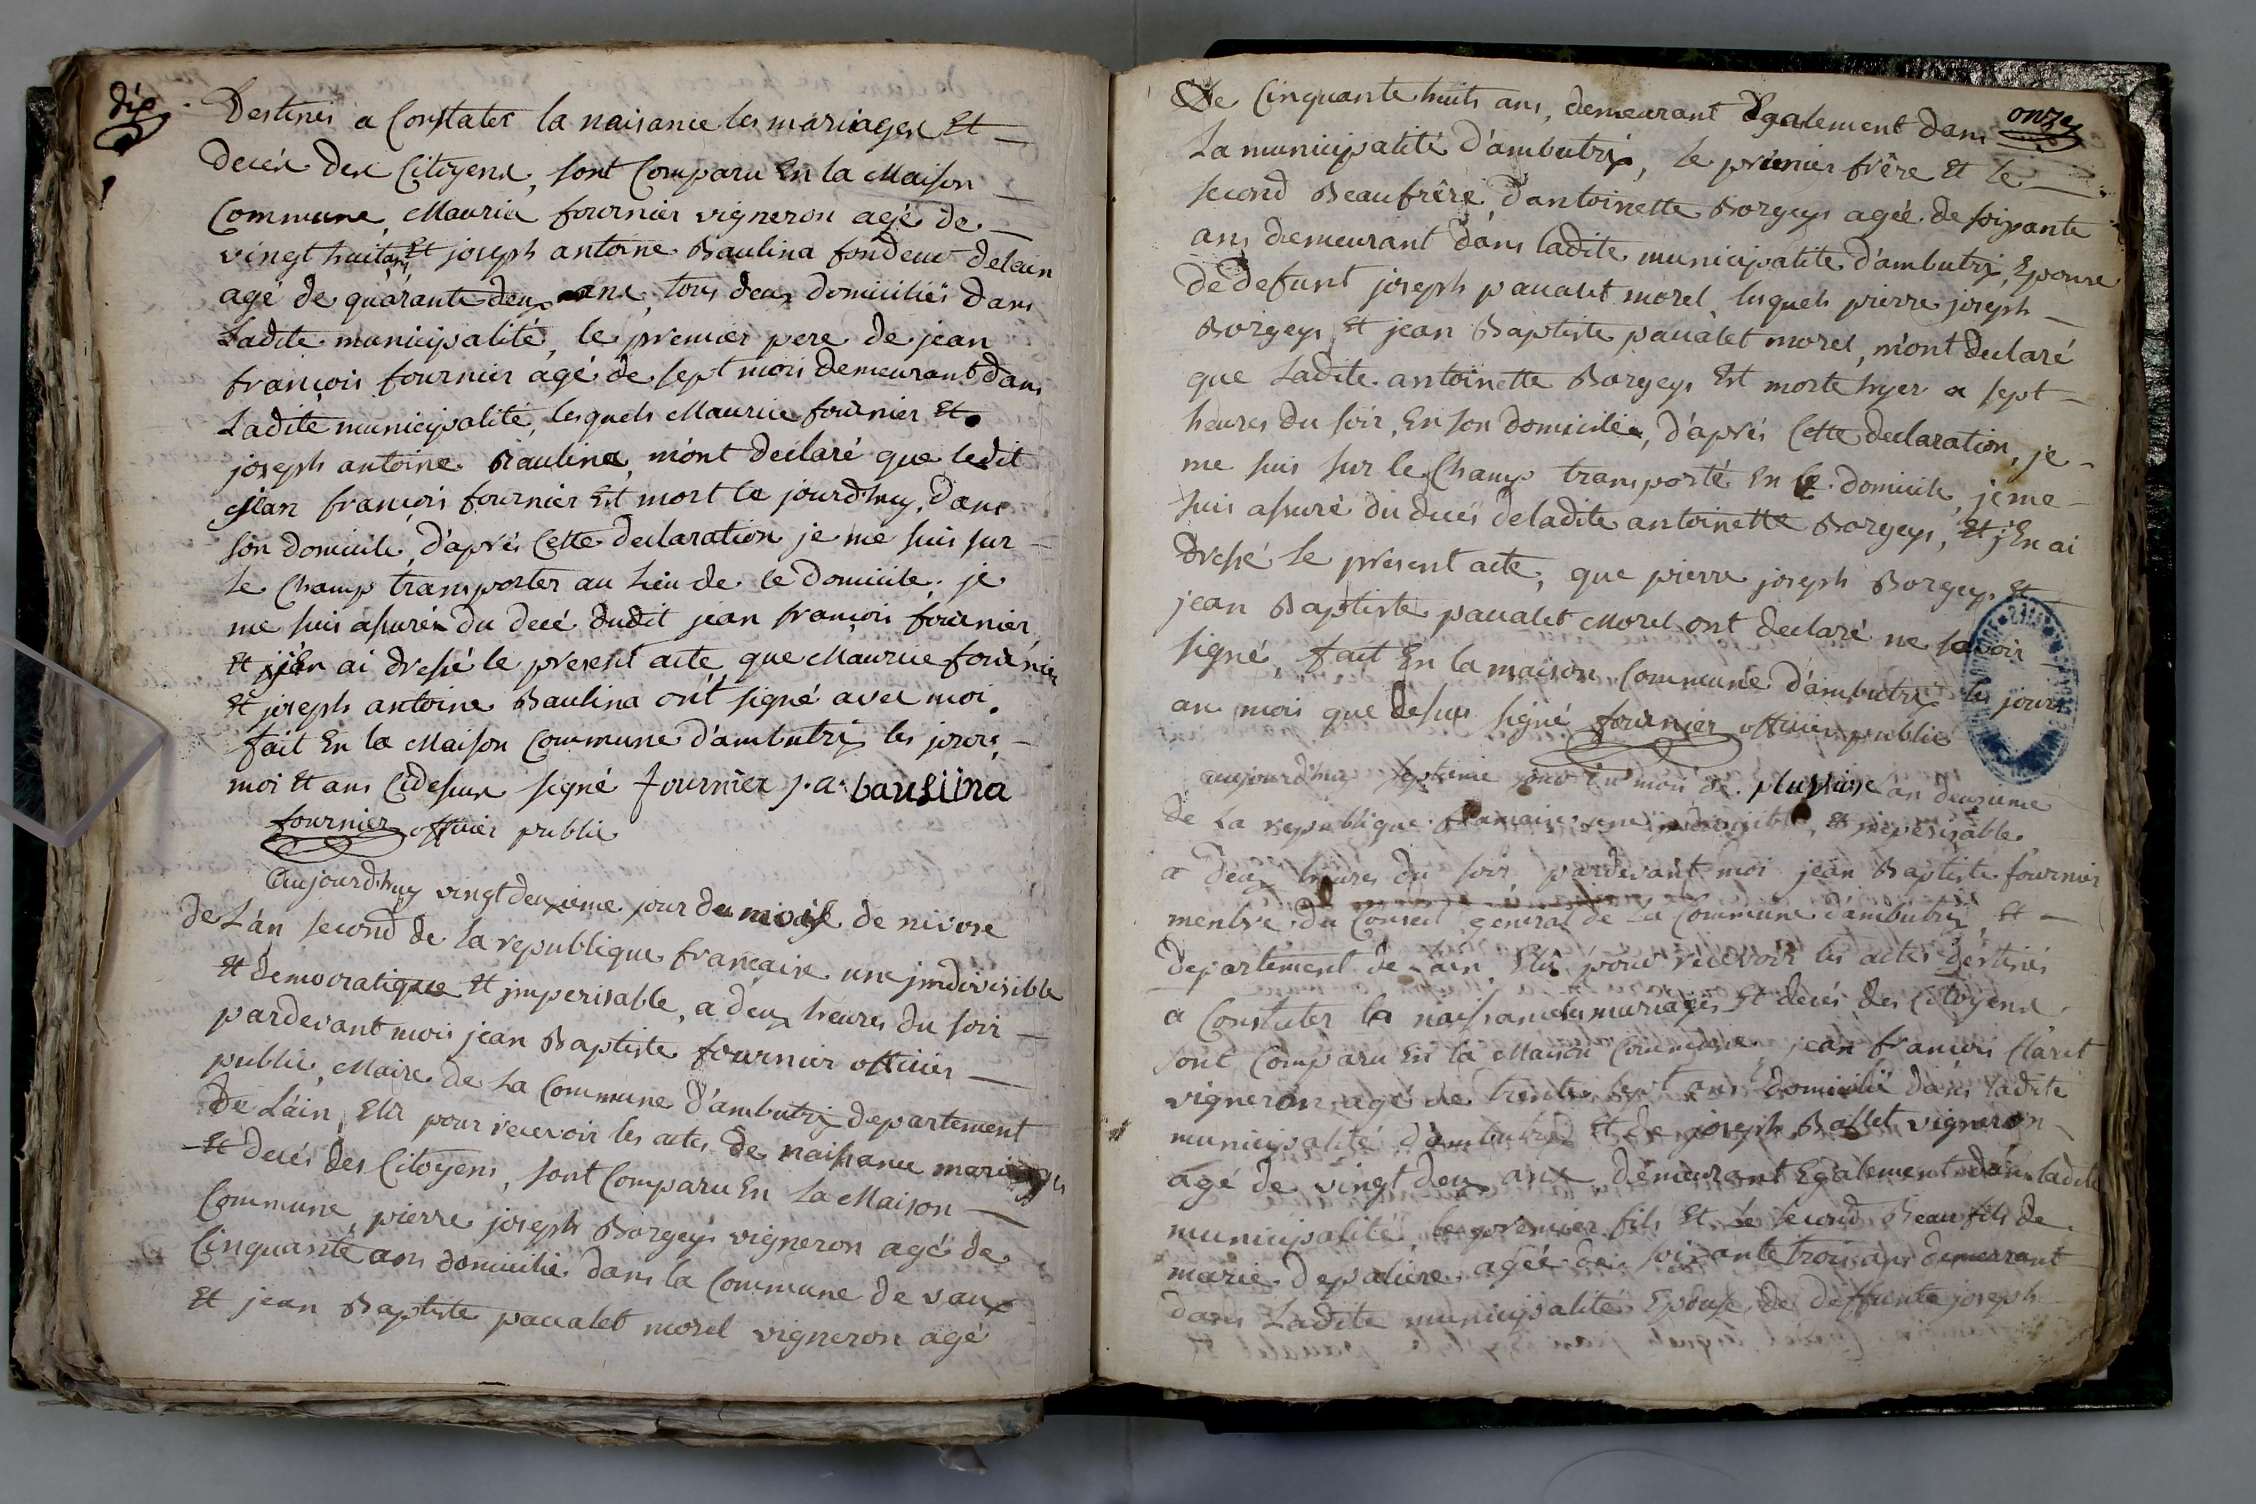 dix
Destinés a Constater la naisance les mariages Et
decés des Citoyens, sont Comparu En la Maison
Commune, Maurice fournier vigneron agé de
vingt huit ans Et joseph antoine Baulina fondeur delain
agé de quarante deux ans, tous deux domiciliés dans
Ladite municipalité, le premier pere de jean
françois fournier agé de sept mois demeurant dans
Ladite municipalité, lesquels Maurice fournier Et
joseph antoine Baulina, m'ont declaré que ledit
jean françois fournier Est mort le jourd'huy, dans
son domicile, d'aprés Cette declaration je me suis sur
le Champ transporter au Lieu de ce domicile, je
me suis assuré du decé dudit jean françois fournier,
Et j'En ai dressé le present acte que Maurice fournier
Et joseph antoine Baulina ont signé avec moi.
fait En la Maison Commune d'ambutrix les jours,
moi Et ans Cidessus signé fournier j. a. bauliina
fournier officier public
aujourd'huy vingt deuxieme jour du mois de nivose
de L'an second de la republique francaise une jndivisible
Et democratique Et jmperisable, a deux heures du soir
pardevant mois jean Baptiste fournier officier
public, Maire de La Commune d'ambutrix departement
de L'ain, Elu pour recevoir les actes de naissance mariages
Et decés des Citoyens, sont Comparu En La Maison
Commune, pierre joseph Borgeys vigneron agé de
Cinquante ans domicilié dans la Commune de vaux
Et jean Baptiste pavalet morel vigneron agé
onze
De Cinquante huits ans, demeurant Egalement dans
La municipalité d'ambutrix, le premier frêre Et le
second Beaufrêre d'antoinette Borgeys agée de soixante
ans demeurant dans ladite municipalité d'ambutrix, Epouse
de defunt joseph pavalet morel, lesquels pierre joseph
Borgeys Et jean Baptiste pavalet morel, m'ont declaré
que Ladite antoinette Borgeys Est morte hyer a sept
heures du soir, En son domicile, d'aprés Cette declaration, je
me suis sur le Champ transporté En ce domicile, je me
suis assuré du decés deladite antoinette Borgeys, Et j'En ai
dressé le present acte, que pierre joseph Borgeys Et
jean Baptiste pavalet Morel ont declaré ne savoir
signé, fait En la maison Commune d'ambutrix les jours
an mois que dessus signé fournier officier public
aujourd'huy septieme jour du mois de pluviose l'an deuxieme
de La republique francaise une jndivisible, Et jmperisable
a deux heures du soir pardevant moi jean Baptiste fournier
menbre du Conseil general de La Commune d'ambutrix, Et
departement de L'ain, Elu pour recevoir les actes destinés
a Constater la naissance les mariages Et decés des Citoyens
sont Comparu En la Maison Commune, jean francois Claret
vigneron agé de trente sept ans domicilié dans ladite
municipalité d'ambutrix Et de joseph Ballet vigneron
agé de vingt deux ans, demeurant Egalement dans ladite
municipalité, le premier fils Et Le second Beau fils de
marie depaliere agée de soixante trois ans demeurant
dans Ladite municipalité Epouse de deffunte joseph